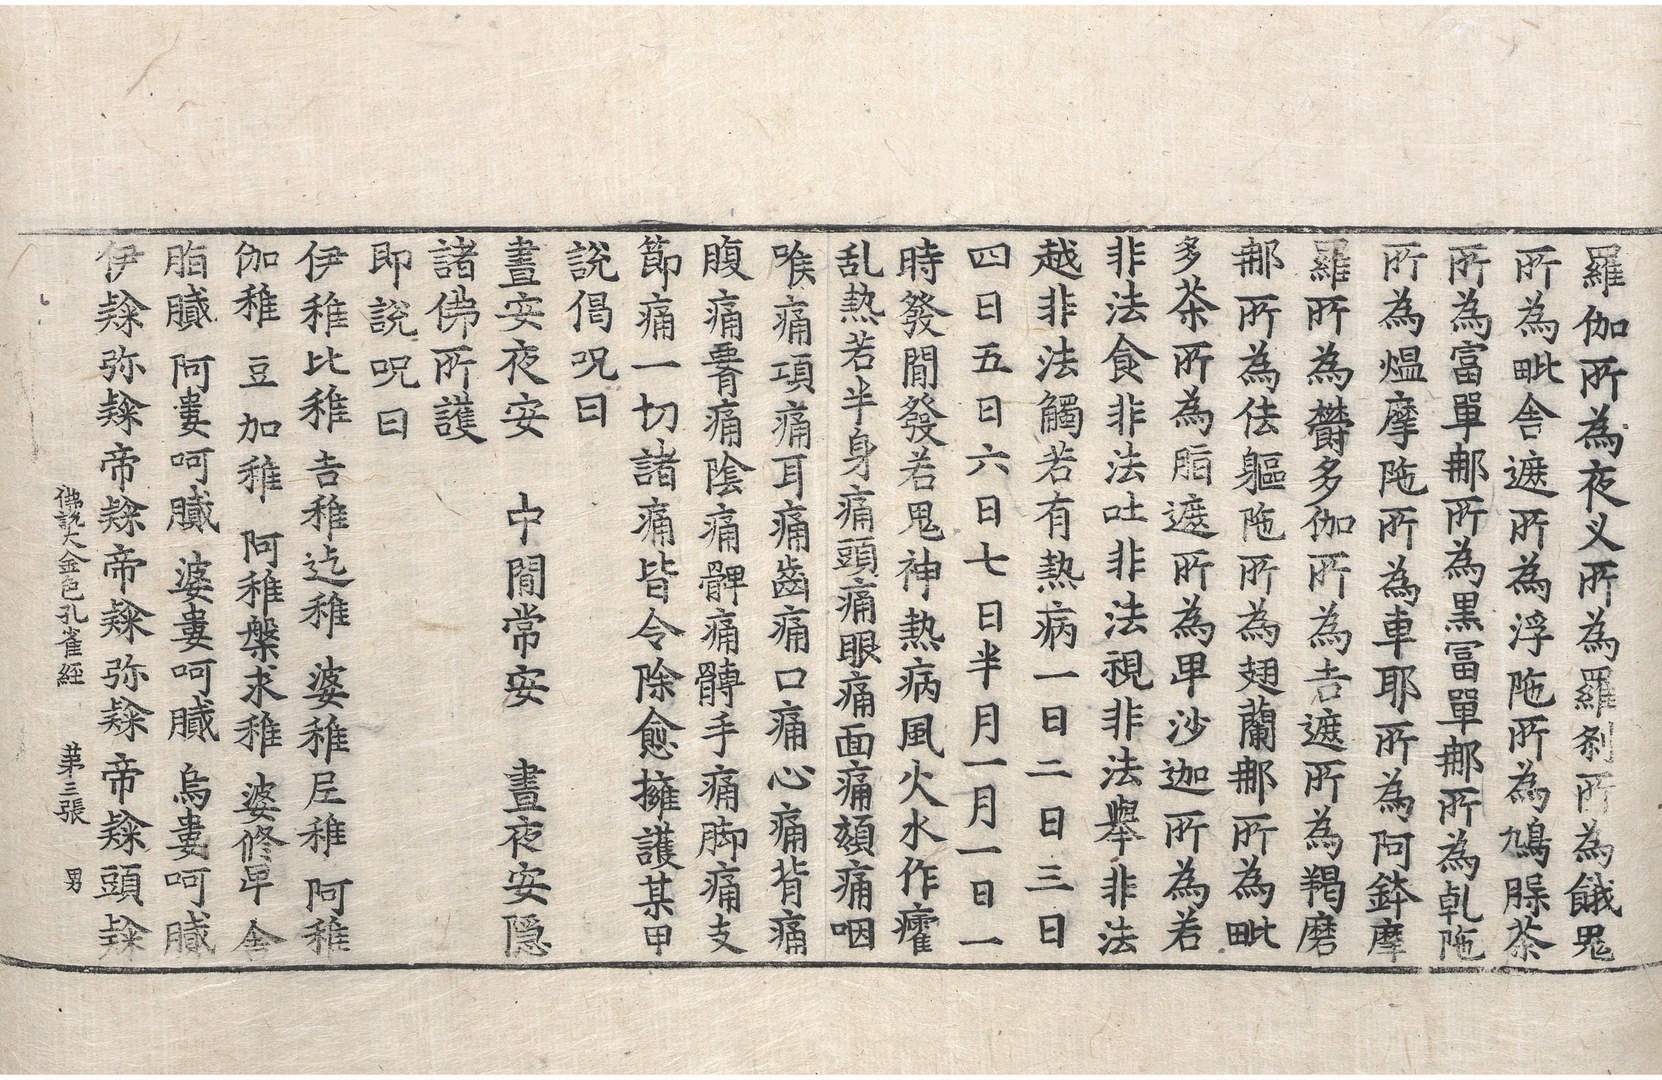 羅伽所為夜义所為羅刹所為餓鬼
所為毗舍遮所為浮陁所為鳩脲茶
所為富單𨚗所為黒冨單𨚗所為乹陁
所為熅摩陁所為車耶所為阿鉢摩
羅所為欝多伽所為吉遮所為羯磨
𨚗所為佉軀陁所為翅蘭𨚗所為毗
多茶所為脂遮所為毕沙迦所為若
非法食非法吐非法視非法舉非法
越非法觸若有熱病一日二日三日
四日五日六日七日半月一月一日一
時發閒發若鬼神熱病風火水作癨
乱熱若半身痛頭痛眼痛面痛頦痛咽
喉痛項痛耳痛齒痛口痛心痛背痛
腹痛䙅痛陰痛髀痛膞手痛脚痛支
節痛一切諸痛皆令除愈擁護某甲
說偈呪曰
晝安夜安　中閒常安　晝夜安隠
諸佛所護
即說呪曰
伊稚比稚吉稚迄稚婆稚𡰱稚阿稚
伽稚豆加稚阿稚槃求稚婆修毕舍
脂膱阿婁呵膱婆婁呵膱烏婁呵膱
伊𥻦弥𥻦帝𥻦帝𥻦弥𥻦帝𥻦頭𥻦
佛說大金色孔雀経　苐三張　男